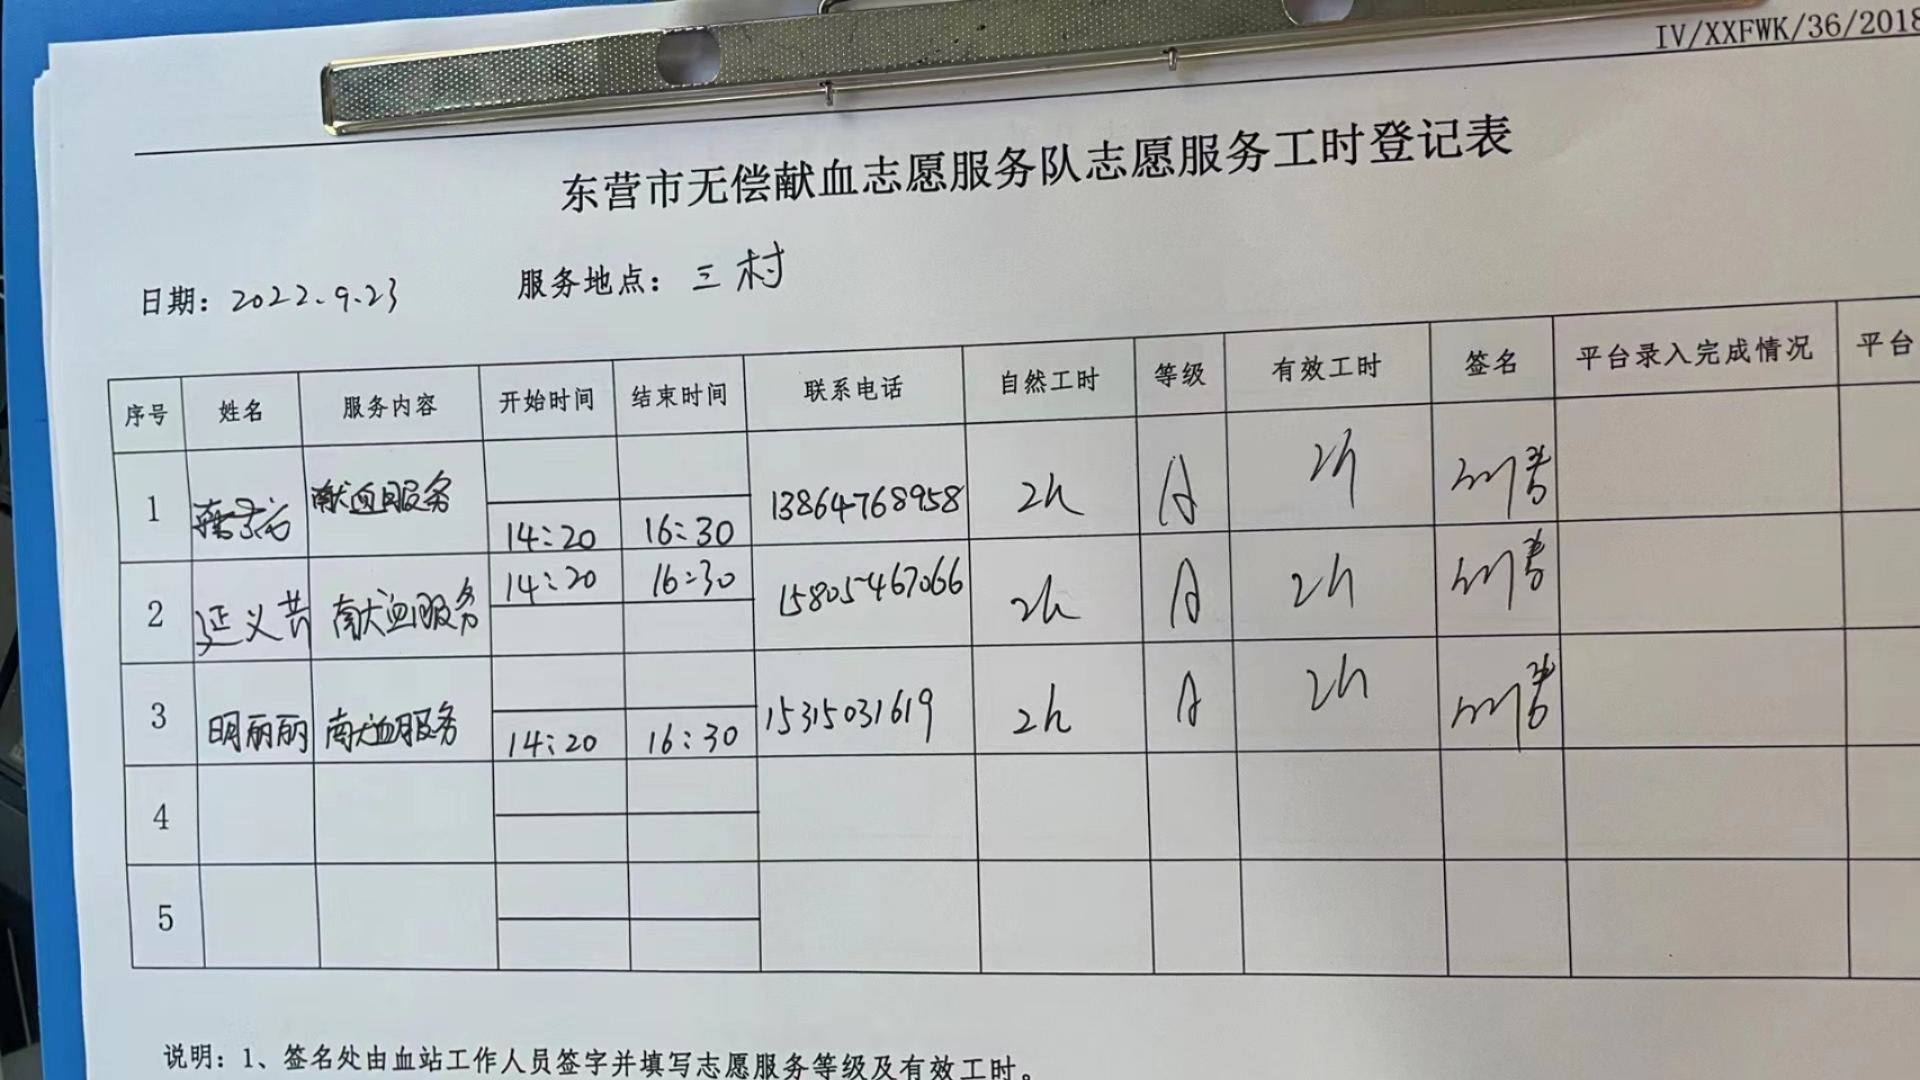 IV/XXFWK/36/2018
东营市无偿献血志愿服务队志愿服务工时登记表
日期：2022.9.23 服务地点：三村
序号 姓名 服务内容 开始时间 结束时间 联系电话 自然工时 等级 有效工时 签名 平台录入完成情况 平台
1 献血服务 14:20 16:30 13864768958 2h A 2h
2 延义共 献血服务 14:20 16:30 15805467066 2h A 2h
3 明丽丽 献血服务 14:20 16:30 15315031619 2h A 2h
4
5
说明：1、签名处由血站工作人员签字并填写志愿服务等级及有效工时。